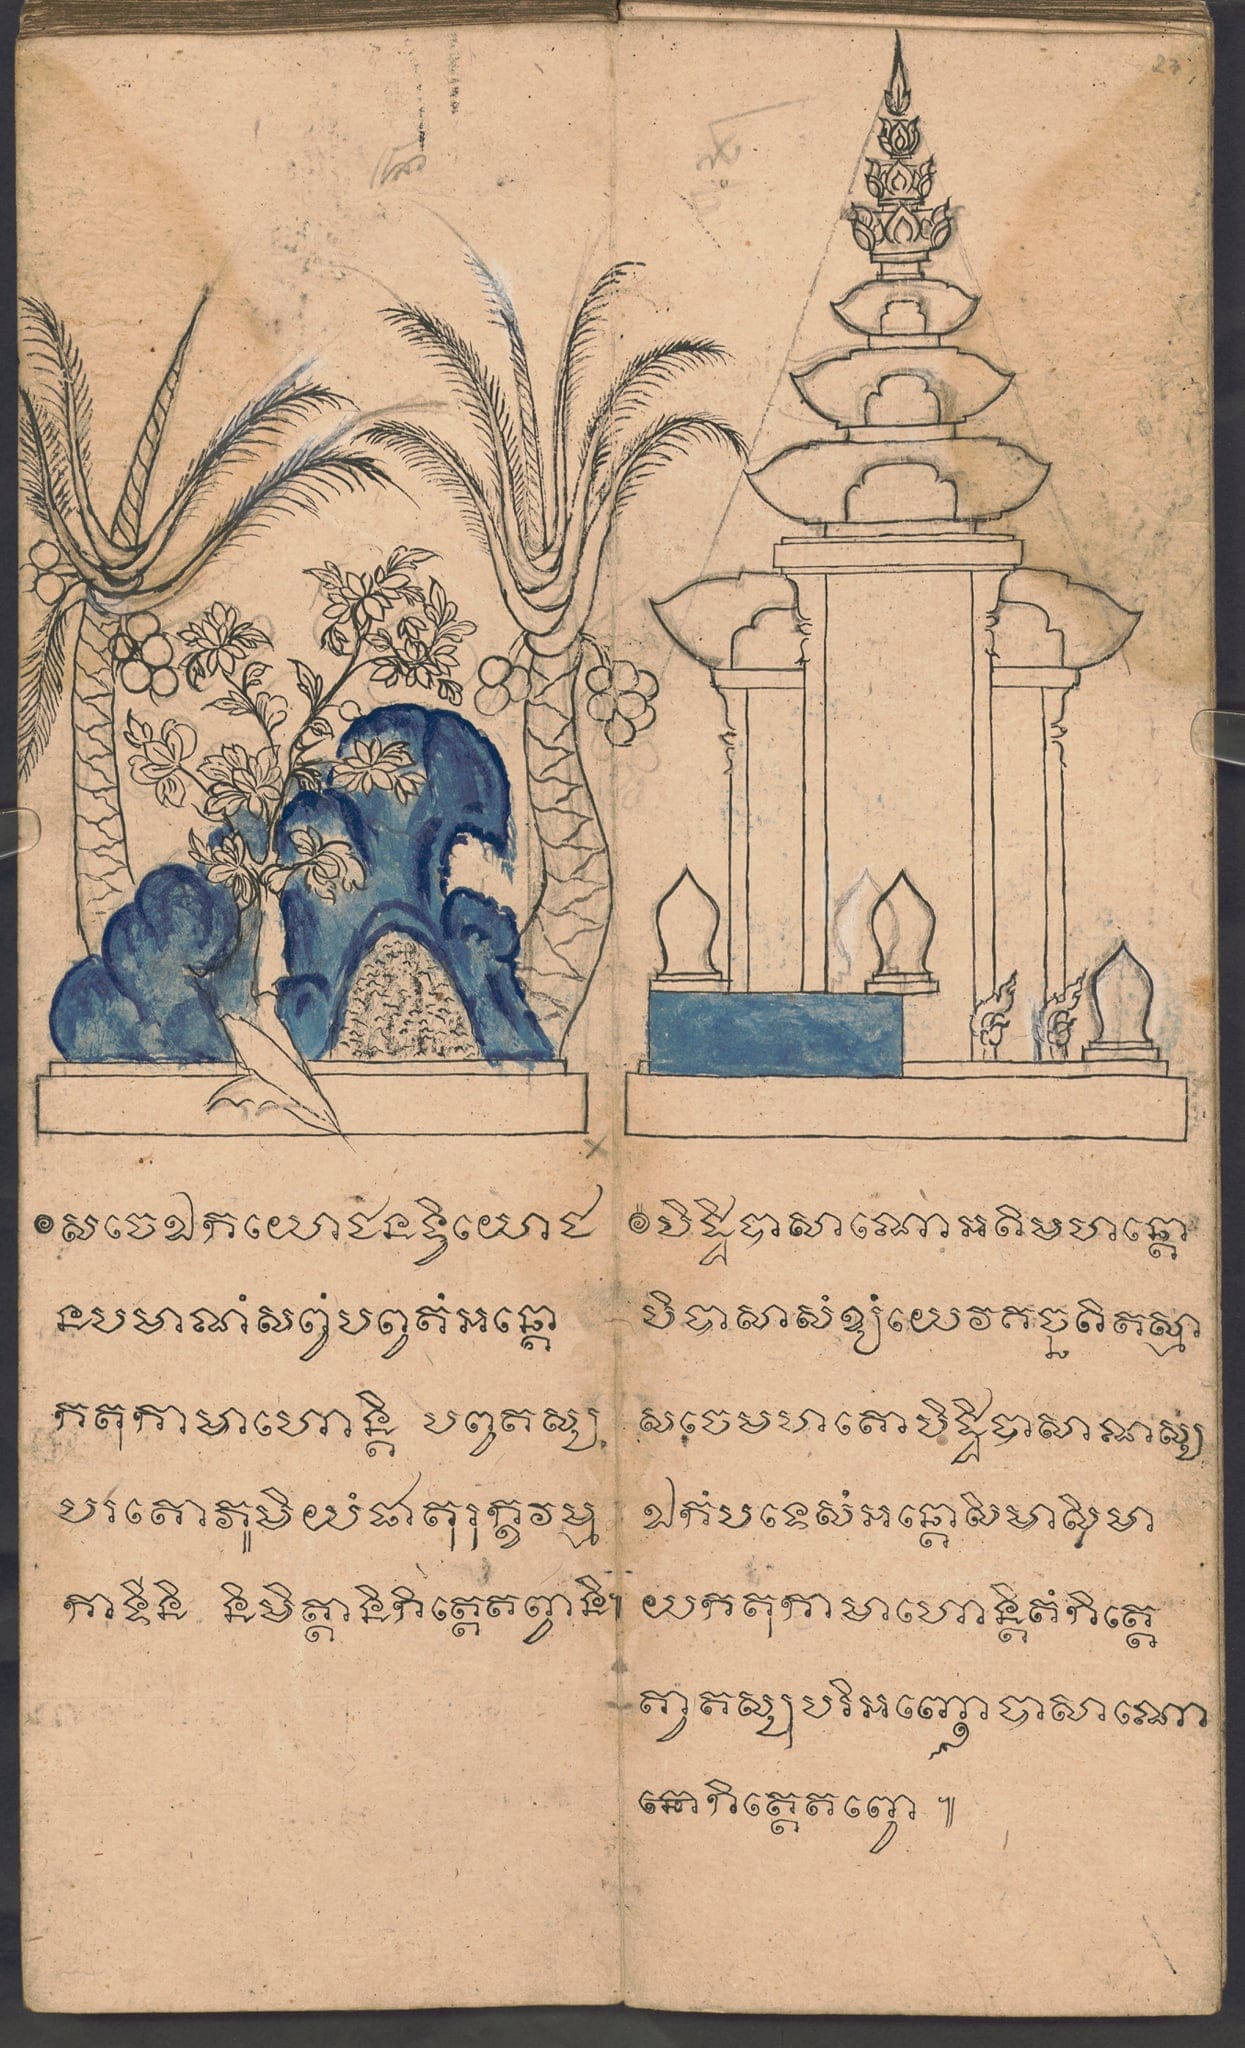 ๏សចេឯកយោជនទ្វិយោជ
នបមាណំសព្វំបព្វតំអន្តោ
កតុកាមាហោន្តិ បព្វតស្ស
បរតោភូមិយំជាតរុក្ខវម្ម
កាទីនិ និមិត្តានិកិត្តេតព្វានិ៕
๏បិដ្ឋិបាសាណោអតិមហន្តោ
បិបាសាសំខ្យំយេវគច្ឆតិតស្មា
សចេមហតោបិដ្ឋិបាសាណស្ស
ឯកំបទេសំអន្តោសិមាសិមា
យកតុកាមាហោន្តិតំកិត្តេ
ត្វាតស្សុបរិអញ្ញោបាសាណោ
កិត្តេតព្វោ ៕